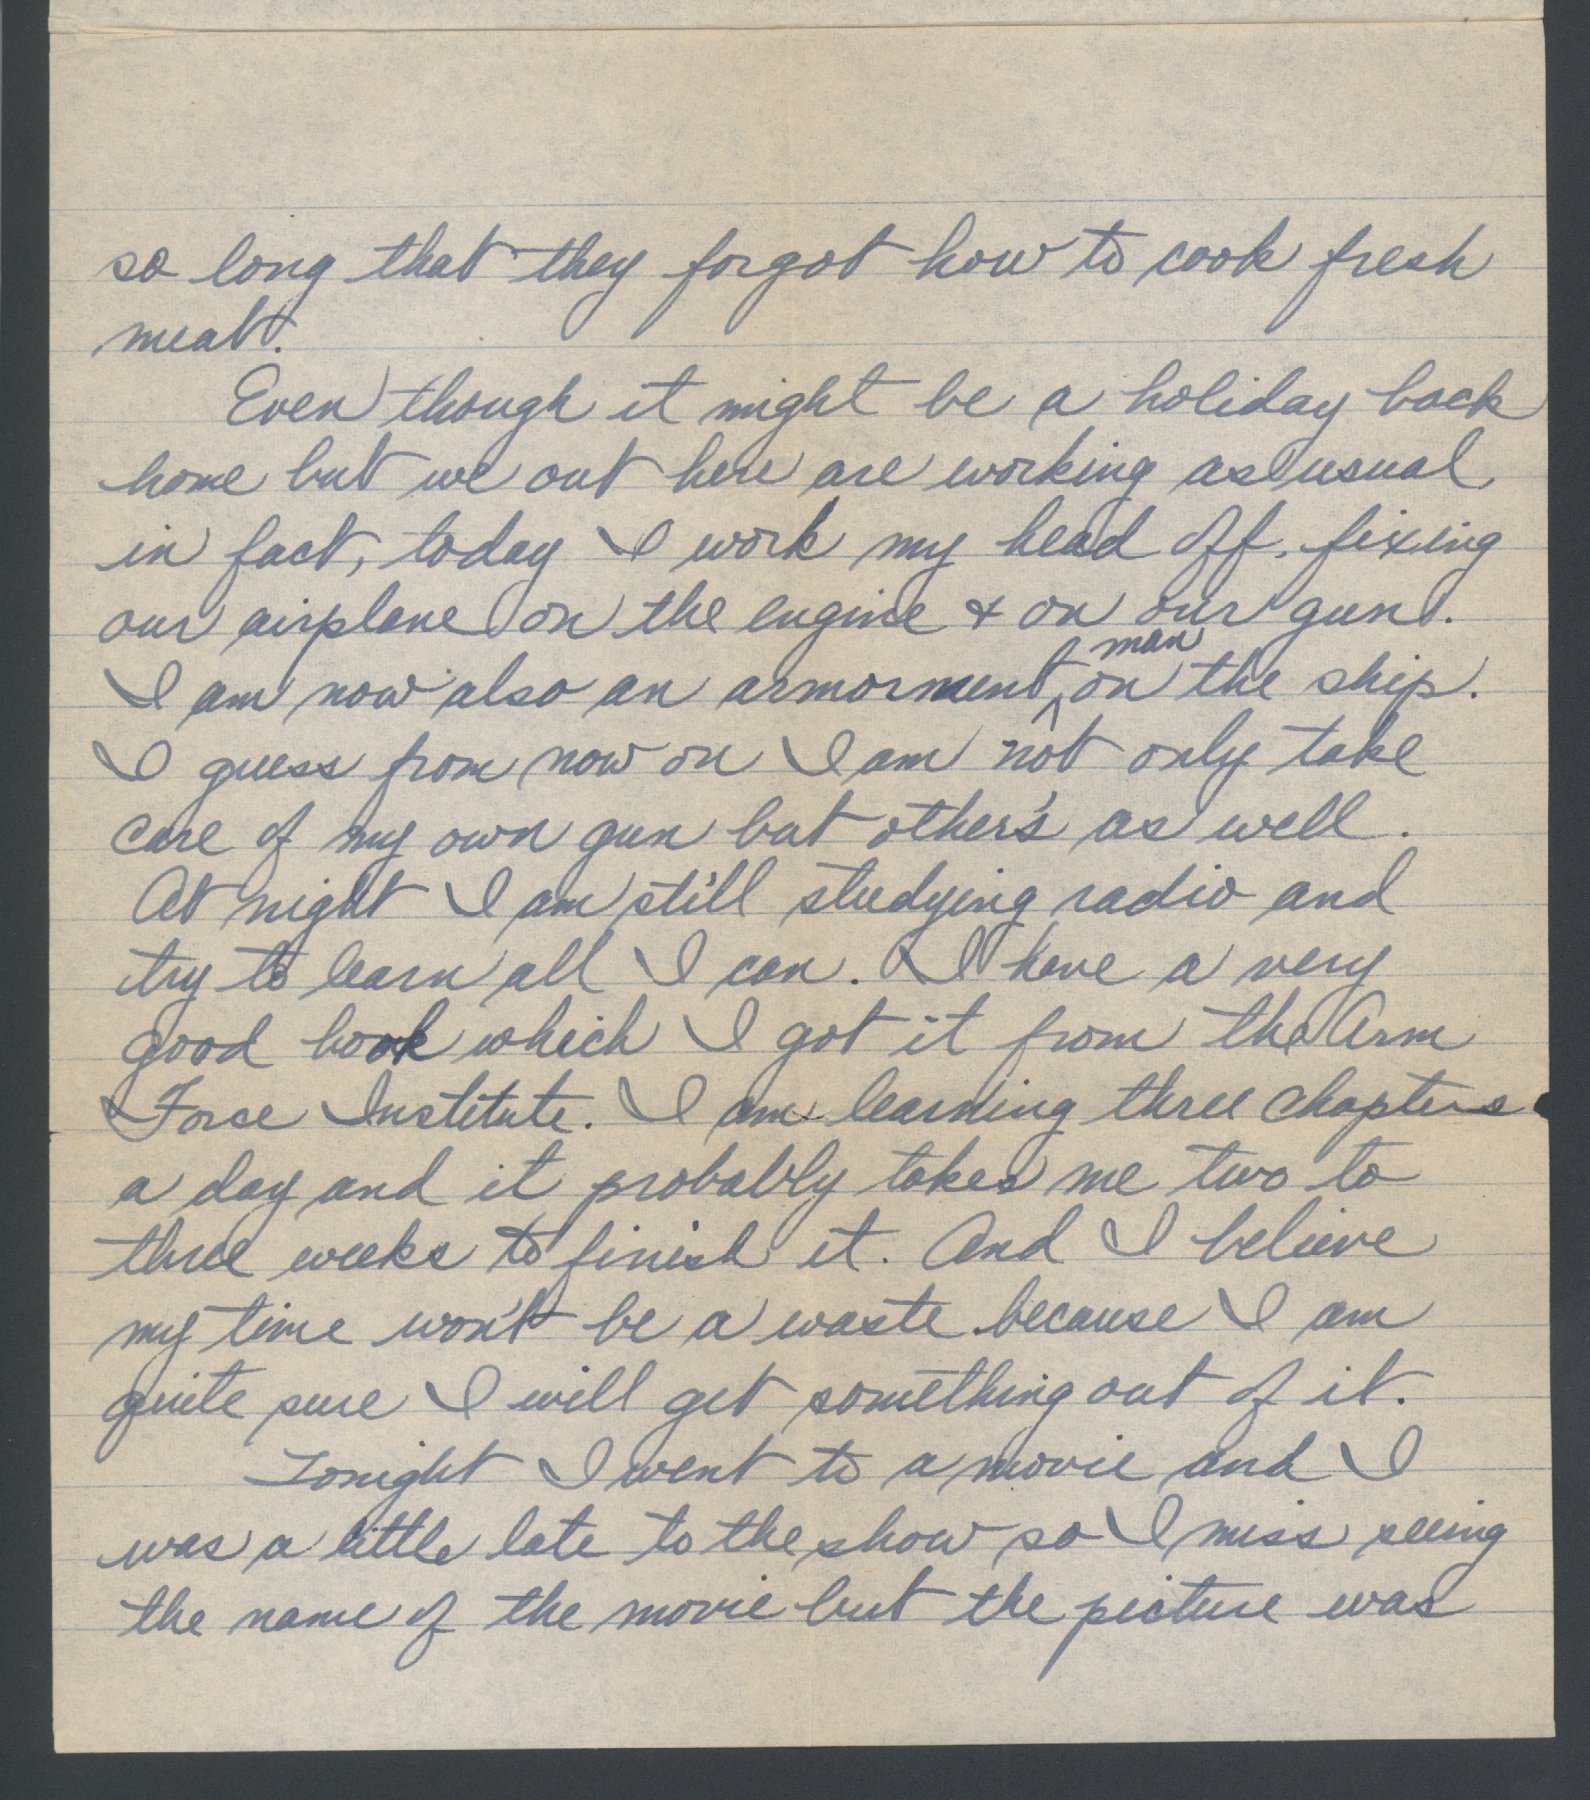 so long that they forgot how to cook fresh
meat.
Even though it might be a holiday back
home but we out here are working as usual,
in fact, today I work my head off, fixing
our airplane on the engine & on our gun.
man
I am now also an armorment ^ on the ship.
I guess from now on I am not only take
care of my own gun but other's as well.
At night I am still studying radio and
try to learn all I can. I have a very
good book which I got it from the Arm
Force Institute. I am learning three chapters
a day and it probably takes me two to
three weeks to finish it. And I believe
my time won't be a waste because I am
quite sure I will get something out of it.
Tonight I went to a movie and I
was a little late to the show so I miss seeing
the name of the movie but the picture was